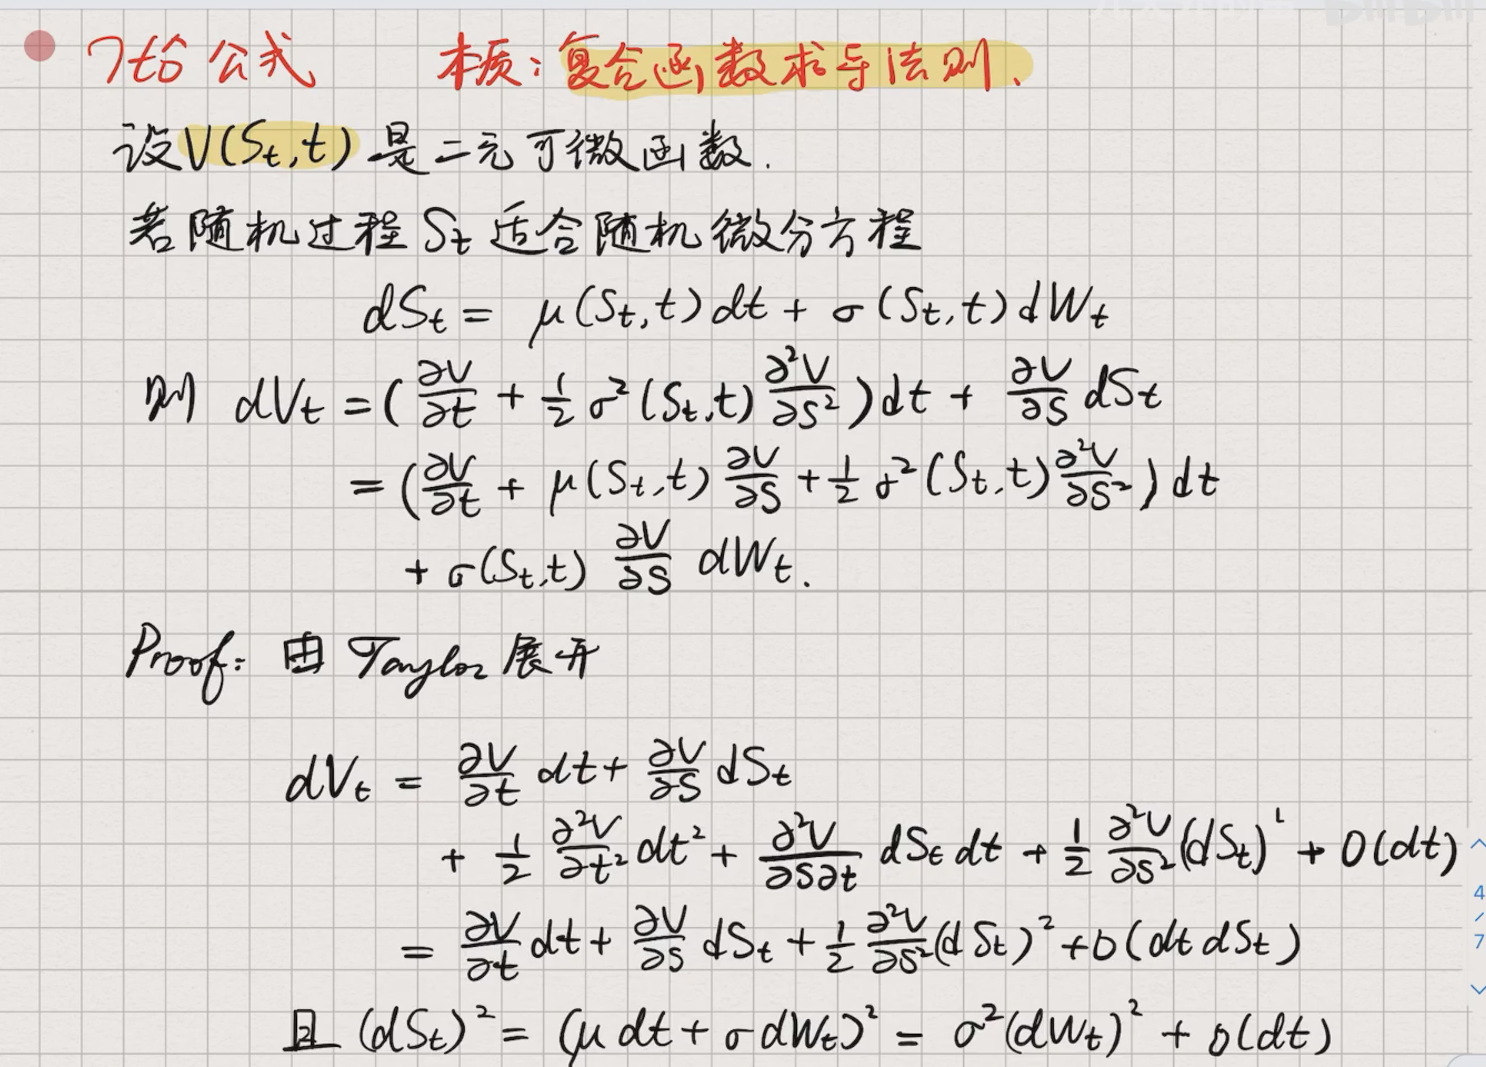 Itô 公式 本质：复合函数求导法则.
设V(S_t,t)是二元可微函数.
若随机过程 S_t 适合随机微分方程
dS_t = μ(S_t,t)dt + σ(S_t,t)dW_t
则 dV_t = (∂V/∂t + 1/2 σ²(S_t,t) ∂²V/∂S²)dt + ∂V/∂S dS_t
= (∂V/∂t + μ(S_t,t) ∂V/∂S + 1/2 σ²(S_t,t) ∂²V/∂S²)dt
+ σ(S_t,t) ∂V/∂S dW_t.
Proof: 由 Taylor 展开
dV_t = ∂V/∂t dt + ∂V/∂S dS_t
+ 1/2 ∂²V/∂t² dt² + ∂²V/∂S∂t dS_t dt + 1/2 ∂²V/∂S² (dS_t)² + O(dt)
= ∂V/∂t dt + ∂V/∂S dS_t + 1/2 ∂²V/∂S² (dS_t)² + o(dt dS_t)
且 (dS_t)² = (μdt + σdW_t)² = σ²(dW_t)² + o(dt)
4
/
7